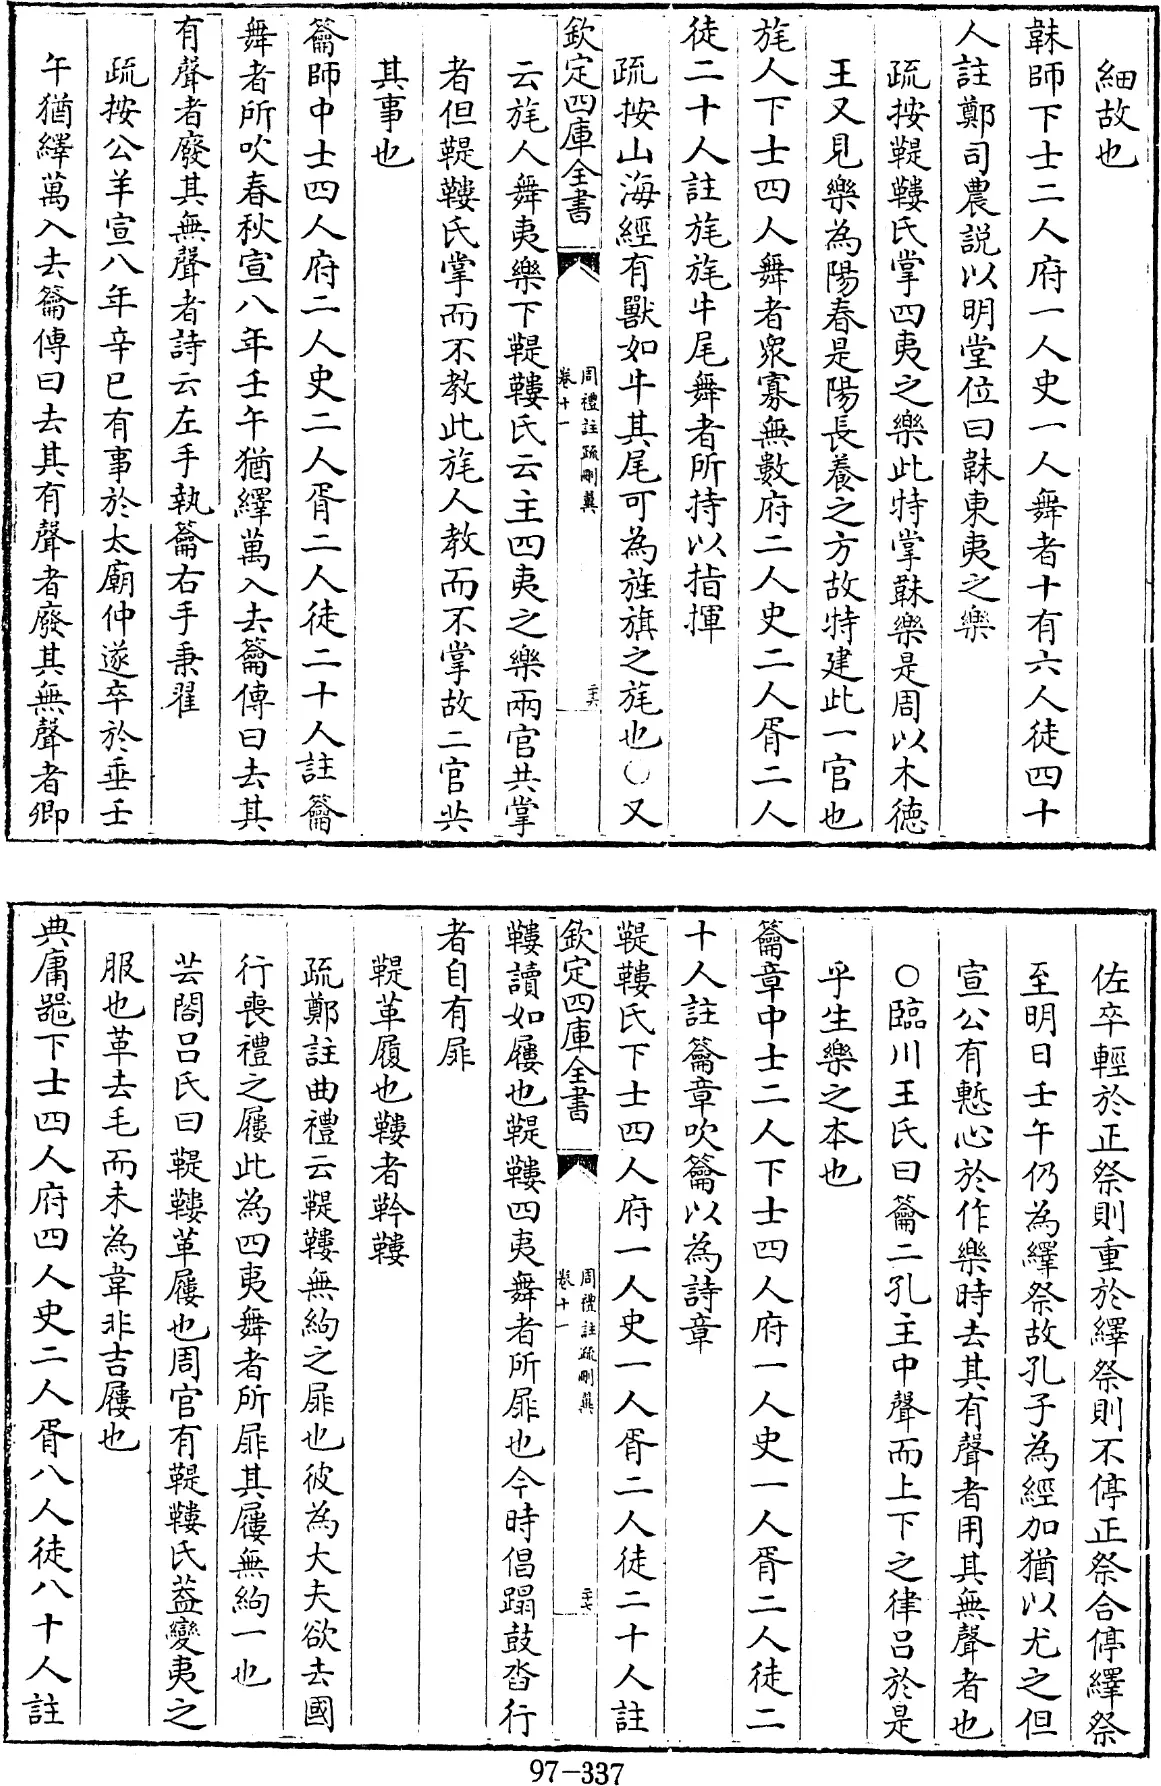 細故也
韎師下士二人府一人史一人舞者十有六人徒四十
人註鄭司農説以明堂位曰韎東夷之樂
疏按鞮鞻氏掌四夷之樂此特掌韎樂是周以木徳
王又見樂為陽春是陽長養之方故特建此一官也
旄人下士四人舞者衆寡無數府二人史二人胥二人
徒二十人註旄旄牛尾舞者所持以指揮
疏按山海經有獸如牛其尾可為旌旗之旄也○又
欽定四庫全書
周禮註疏刪翼
卷十一
二十六
云旄人舞夷樂下鞮鞻氏云主四夷之樂兩官共掌
者但鞮鞻氏掌而不教此旄人教而不掌故二官共
其事也
籥師中士四人府二人史二人胥二人徒二十人註籥
舞者所吹春秋宣八年壬午猶繹萬入去籥傳曰去其
有聲者廢其無聲者詩云左手執籥右手秉翟
疏按公羊宣八年辛巳有事於太廟仲遂卒於垂壬
午猶繹萬入去籥傳曰去其有聲者廢其無聲者卿
佐卒輕於正祭則重於繹祭則不停正祭合停繹祭
至明日壬午仍為繹祭故孔子為經加猶以尤之但
宣公有慙心於作樂時去其有聲者用其無聲者也
○臨川王氏曰籥二孔主中聲而上下之律吕於是
乎生樂之本也
籥章中士二人下士四人府一人史一人胥二人徒二
十人註籥章吹籥以為詩章
鞮鞻氏下士四人府一人史一人胥二人徒二十人註
欽定四庫全書
周禮註疏刪翼
卷十一
二十七
鞻讀如屨也鞮鞻四夷舞者所屝也今時倡蹋鼓沓行
者自有屝
鞮革履也鞻者軡鞻
疏鄭註曲禮云鞮鞻無絇之屝也彼為大夫欲去國
行喪禮之屨此為四夷舞者所屝其屨無絇一也
芸閣吕氏曰鞮鞻革屨也周官有鞮鞻氏葢變夷之
服也革去毛而未為韋非吉屨也
典庸噐下士四人府四人史二人胥八人徒八十人註
97-337